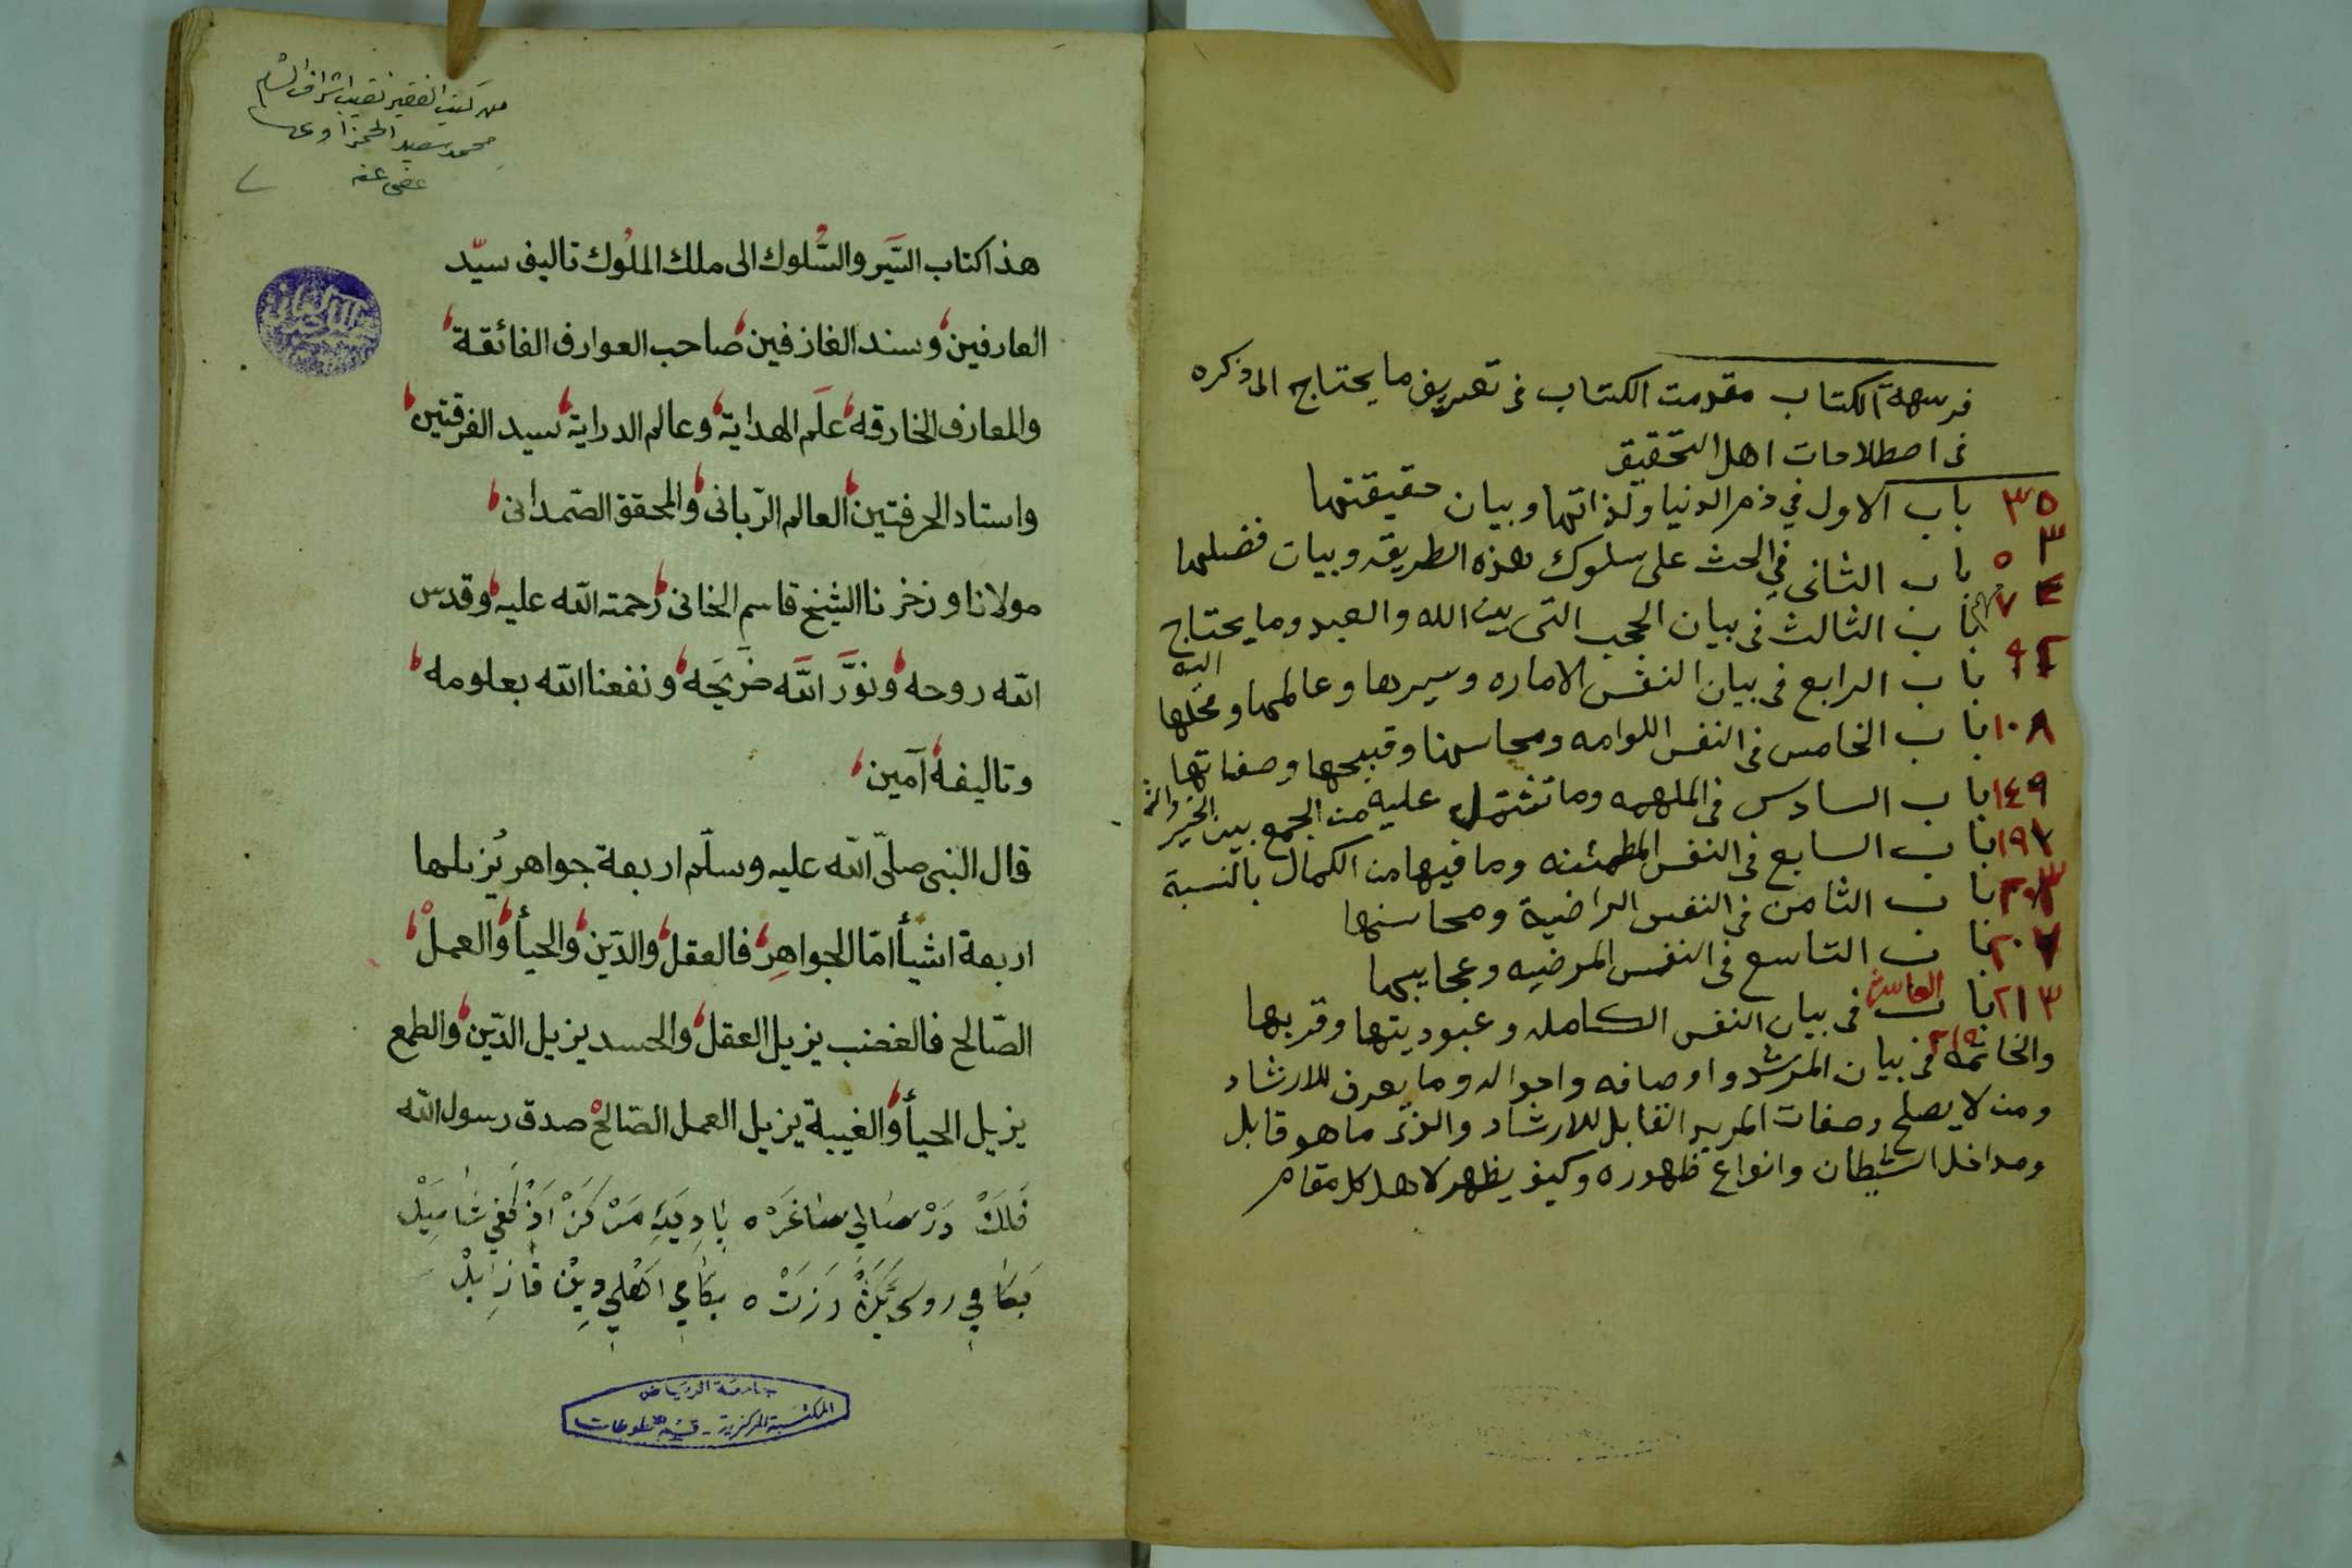 فرسهة الكتاب مقومت الكتاب فى تعريف ما يحتاج الى ذكره
فى اصطلاحات اهل التحقيق
٣٥ باب الاول في ذم الدنيا ولذاتها وبيان حقيقتها
باب الثانى في الحث على سلوك هذه الطريقه وبيان فضلها
باب الثالث فى بيان الحجب التى بين الله والعبد وما يحتاج
اليه
باب الرابع فى بيان النفس الاماره وسيرها وعالمها ومحلها
١٠٨ باب الخامس فى النفس اللوامه ومحاسنها وقبيحها وصفاتها
١٤٩ باب السادس فى الملهمه وما تشتمل عليه من الجمع بين الخير
١٩٧ باب السابع فى النفس المطمئنه وما فيها من الكمال بالنسبة
باب الثامن فى النفس الراضية ومحاسنها
٢٠٧ باب التاسع فى النفس المرضيه وعجايبها
٢١٣ باب العاشر فى بيان النفس الكامله وعبوديتها وقربها
والخاتمه فى بيان المرشد واوصافه واحواله وما يعرف للارشاد
ومن لا يصلح وصفات المريد القابل للارشاد والذى ما هو قابل
ومداخل الشيطان وانواع ظهوره وكيف يظهر لاهل كل مقام
من كتب الفقير نقيب اشراف الشام
محمد سعيد الحمزاوى
عفى عنه
هذا كتاب السَّير والسُّلوك الى ملك الملُوك تاليف سيّد
العارفين وسند الغازفين صاحب العوارف الفائقة
والمعارف الخارقه علَم الهداية وعالم الدراية سيد الفرقتين
واستاد الحرفتين العالم الرّبانى والمحقق الصّمدانى
مولانا وزخرنا الشيخ قاسم الخانى رحمته الله عليه وقدس
الله روحه ونوَّر اللَّه ضريَحه ونفعنا الله بعلومه
وتاليفه آمين
قال النبى صلّى الله عليه وسلّم اربعة جواهر يُزيلها
اربعة اشيأ امّا الجواهِر فالعقل والدّين والحيأ والعملْ
الصّالح فالغضب يزيل العقل والحسد يزيل الدّين والطمع
يزيل الحيأ والغيبة يزيل العمل الصّالح صدق رسول الله
جامعة الرياض
المكتبة المركزية - قسم المخطوطات